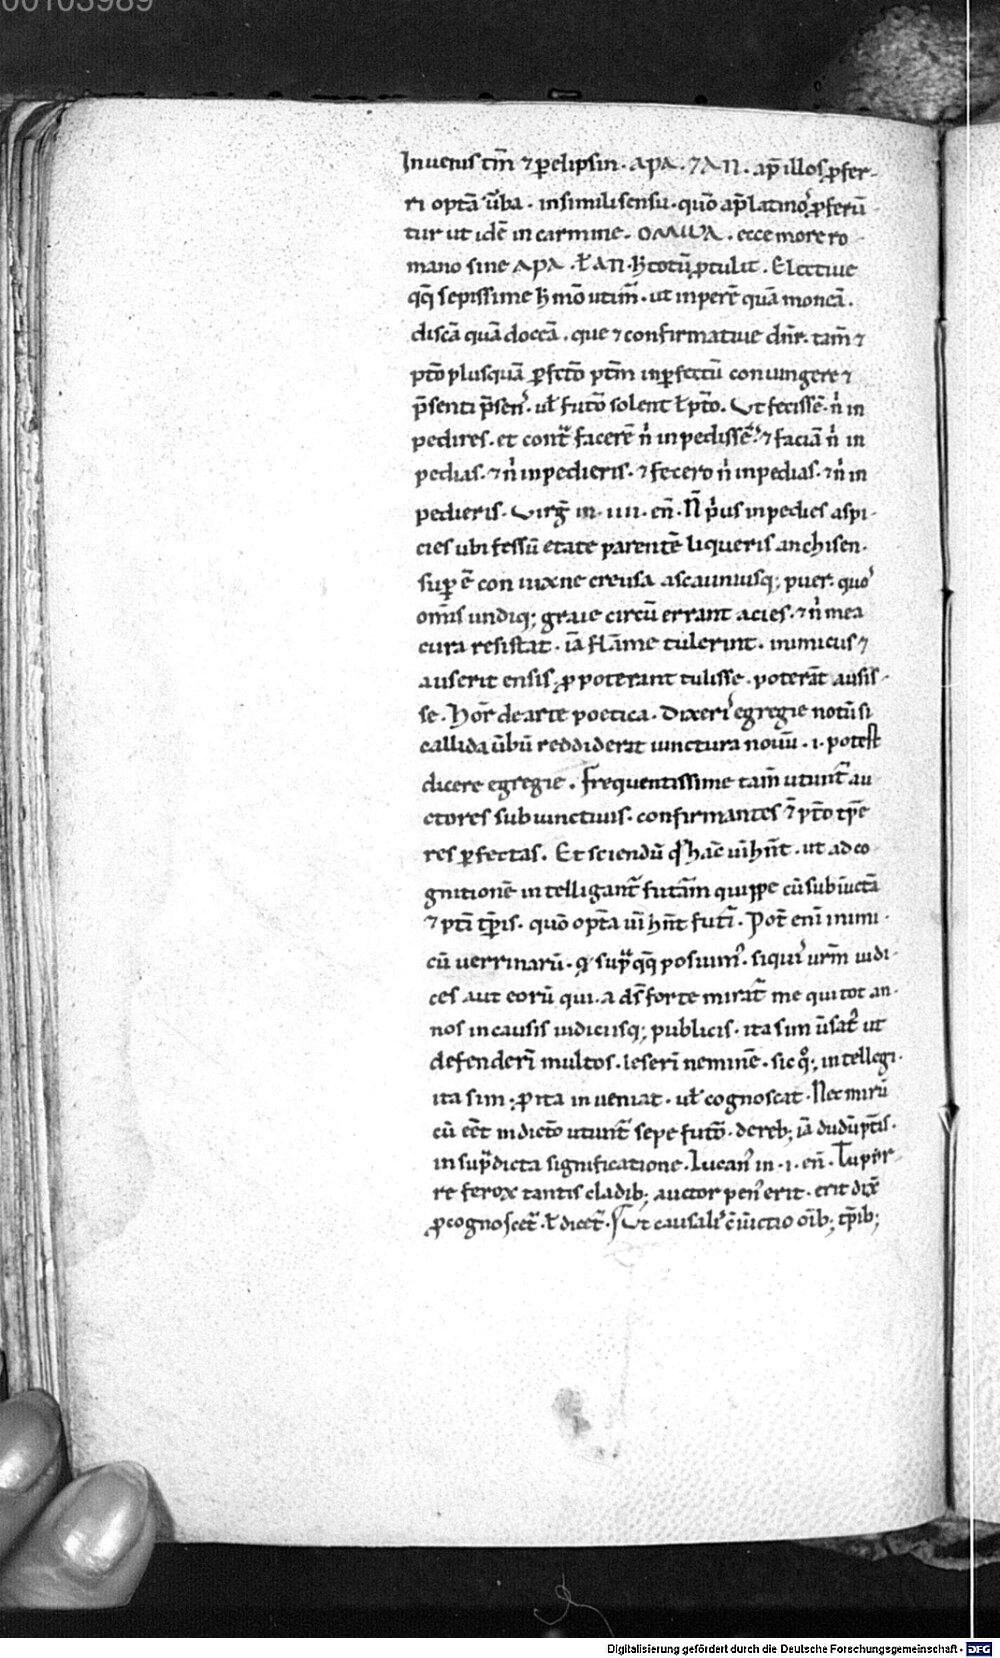 00103989
Inuenis tm̄ ⁊ ꝑelipsin · ΑΡΑ · ⁊ ΑΠ · ap̄ illos ꝓfer-
ri optā ūba · insimili sensu · quō ap̄ latinoˢ ꝓferū
tur ut idē in carmine · ecce more ro
mano sine ΑΡΑ · ł ΑΠ · totū ꝓtulit · Electiue
qq̄ sepissime mō utim̄ · ut inperē quā moneā ·
discā quā doceā · que ⁊ confirmatiue dn̄r · tam̄ ⁊
p̄to plusquā ꝑfcto p̄tm inꝑfectū coniungere ⁊
p̄senti p̄senˢ · uł futō solent ł p̄to · Ut fecissē · n̄ in
pedires · et cont̄ facerē n̄ inpedissē ⁊ faciā n̄ in
pedias · ⁊ n̄ inpedieris · ⁊ fecero n̄ inpedias · ⁊ n̄ in
pedieris · Virḡ in · iiii · en̄ · N̄ pͥus inpedies aspi-
cies ubi fessū etate parentē liqueris anchisen ·
suꝑ ē coniuxne creusa ascaniusq; puer · quoˢ
om̄s undiq; graie circū errant acies · ⁊ n̄ mea
cura resistat · iā flāme tulerint · inimicus ⁊
auserit ensis · ꝓ poterant tulisse · poterāt ausis-
se · Hor̄ de arte poetica · Dixeriˢ egregie notū si
callida ūbū reddiderit iunctura nouū · i · potest
dicere egregie · frequentissime tam̄ utunt̄ au
ctores subiunctiuis · confirmantes p̄to tp̄e
res ꝑfectas · Et sciendū hn̄t · ut ad co
gnitionē intelligant̄ futām quippe cū subiūctā
⁊ p̄ti tp̄ris · quō opt̄a uī hn̄t futͥ · Pot̄ enī inimi-
cū uerrinarū · supͣ qq̄ posuimˢ · siquiˢ urm̄ iudi-
ces aut eorū qui · a ds̄ forte mirat̄ me qui tot an-
nos in causis iudiciisq; publicis · ita sim ūsat̄ ut
defenderī multos · leserī neminē · sic intellegi ·
ita sim · ꝓ ita inueniat · uł cognoscat · Nec mirū
cū indicto utunt̄ sepe futō · de reb; iā dudū p̄tis ·
in sup̄dicta significatione · Lucanˢ in · i · en̄ ·
re ferox tantis cladib; auctor penˢ erit · erit dix̄
ꝓ cognoscet̄ · ł dicet̄ · Ut causaliˢ ciūctio oīb; tp̄ib;
Digitalisierung gefördert durch die Deutsche Forschungsgemeinschaft - DFG